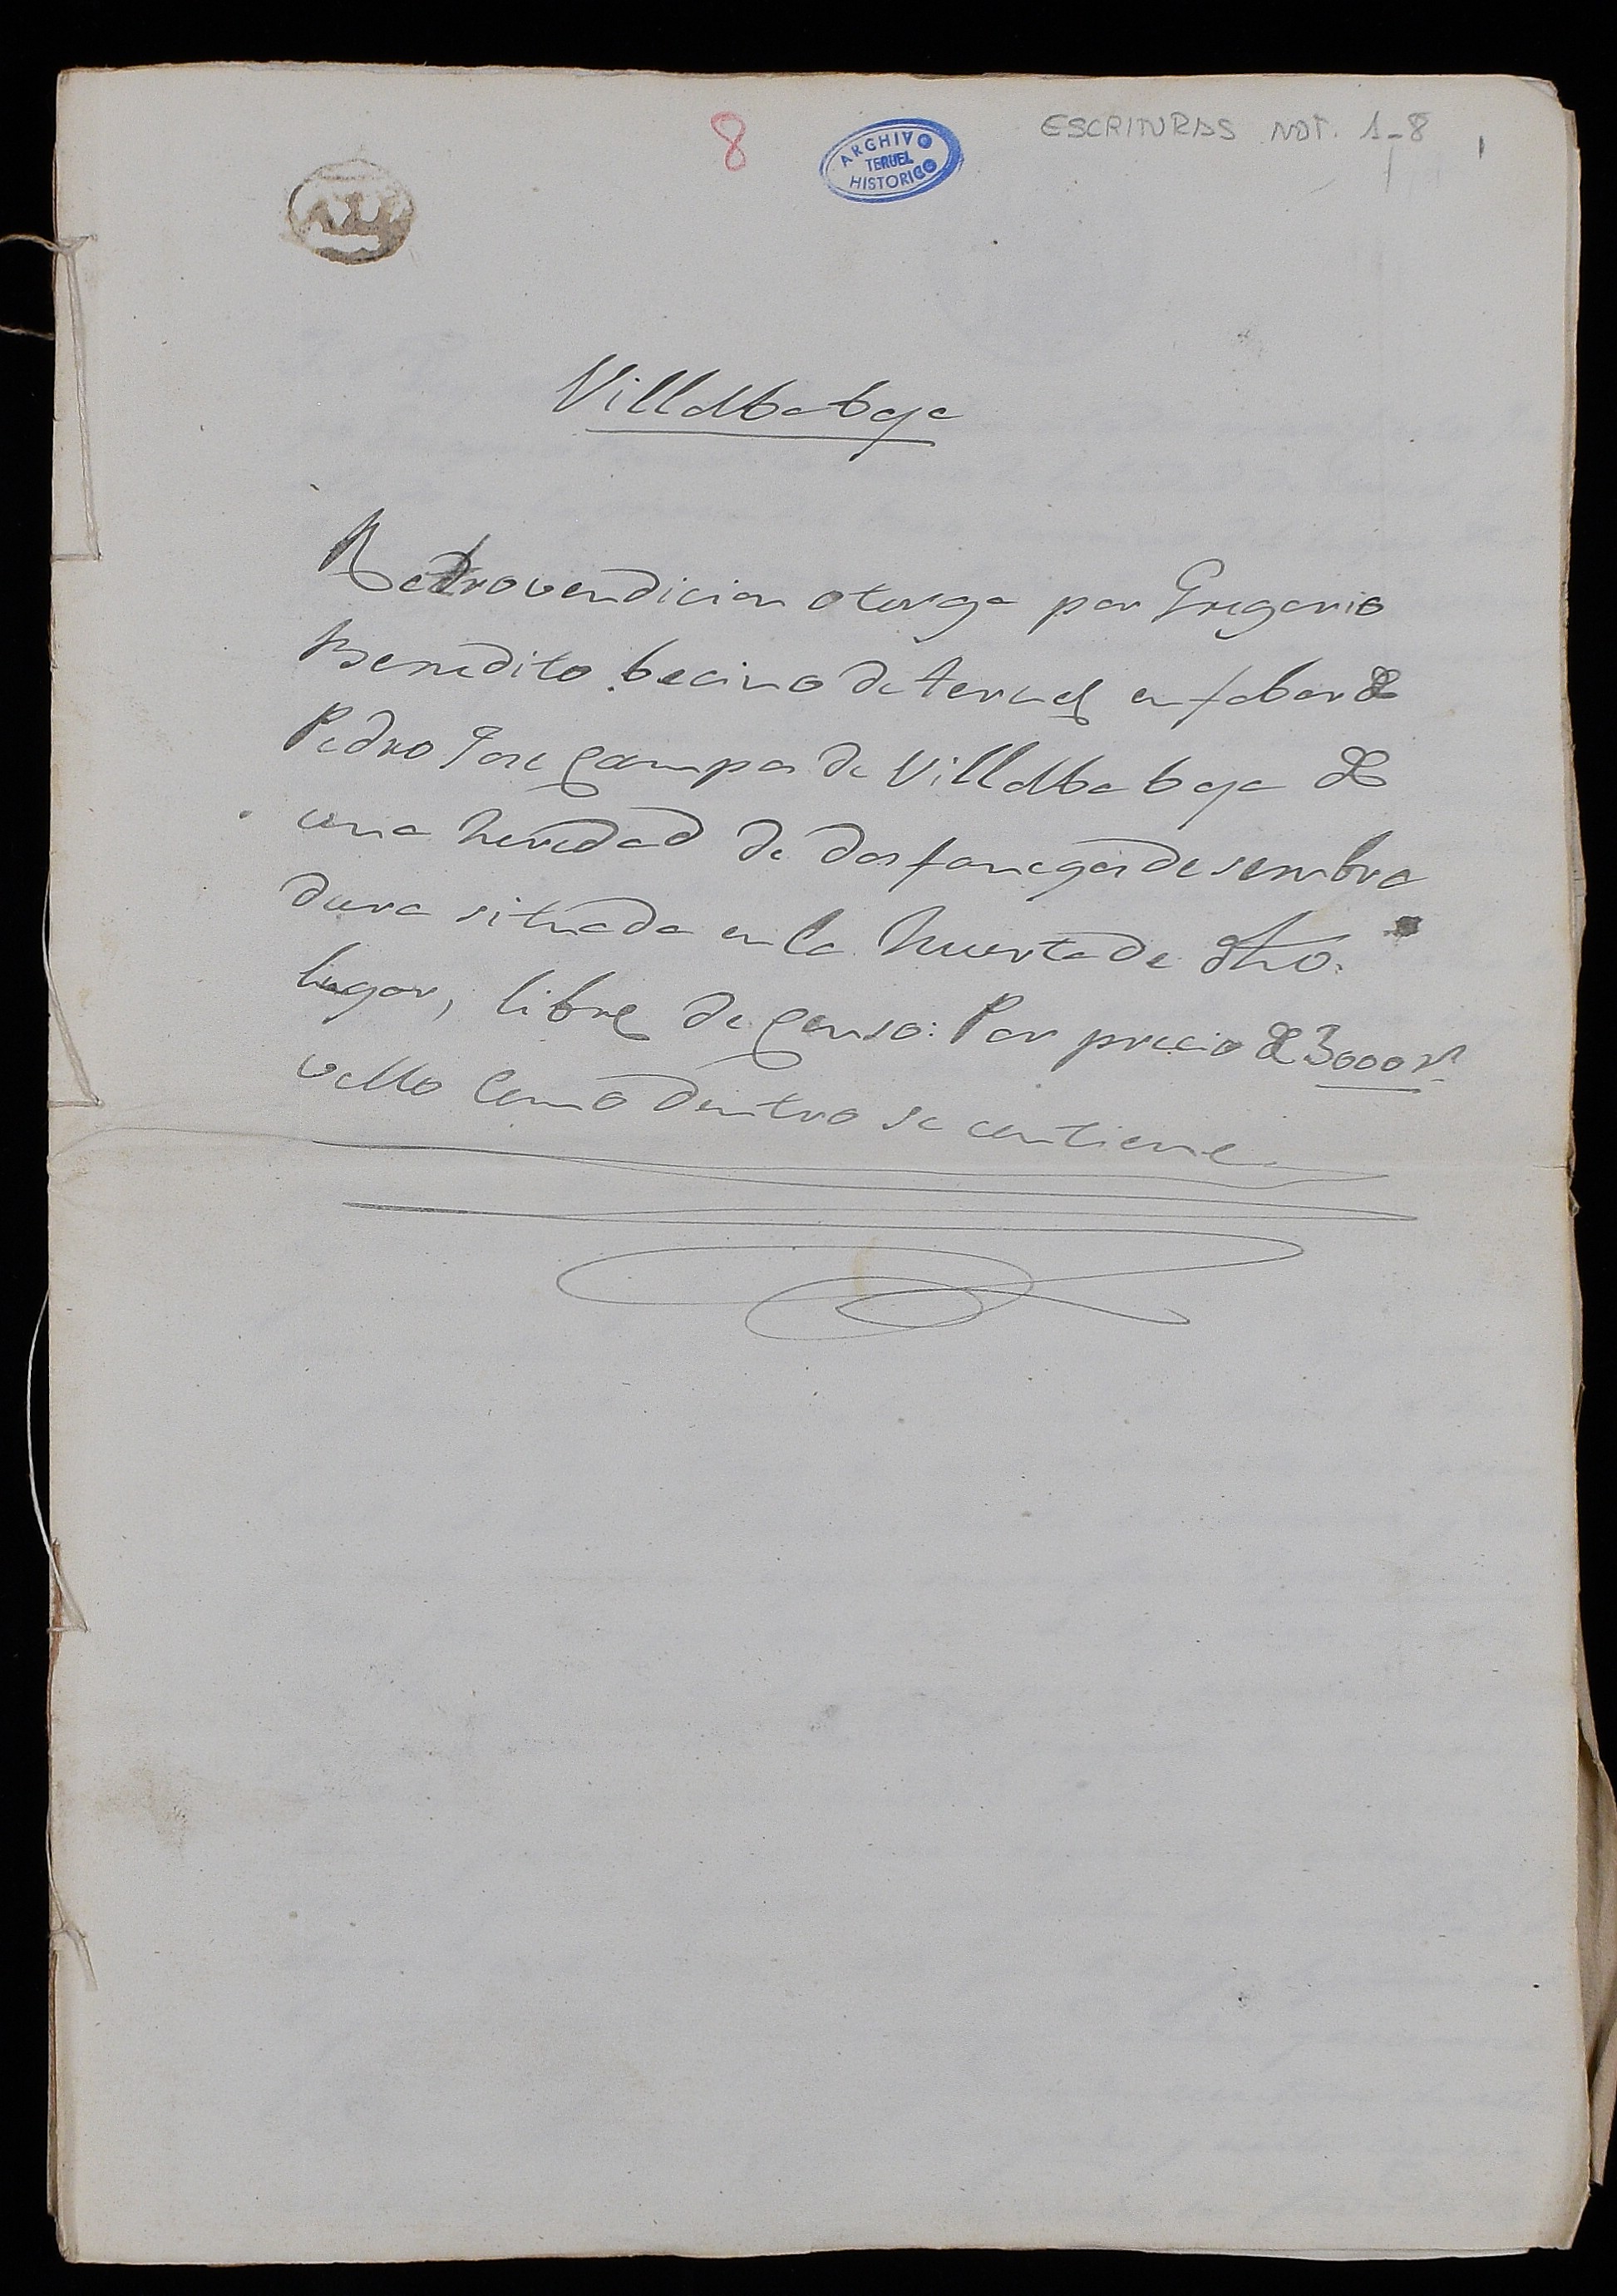 8
ARCHIVO
TERUEL
HISTORICO
ESCRITURAS NOT. 1-8
1
Villalba baja
Retrovendicion otorga por Gregorio
Benedito becino de teruel en fabor de
Pedro Jose Campos de Villalba baja de
una heredad de dos fanegas de sembra
dura situada en la huerta de dho.
lugar, libre de Censo: Por precio de 3000 rs.
vello Como dentro se contiene